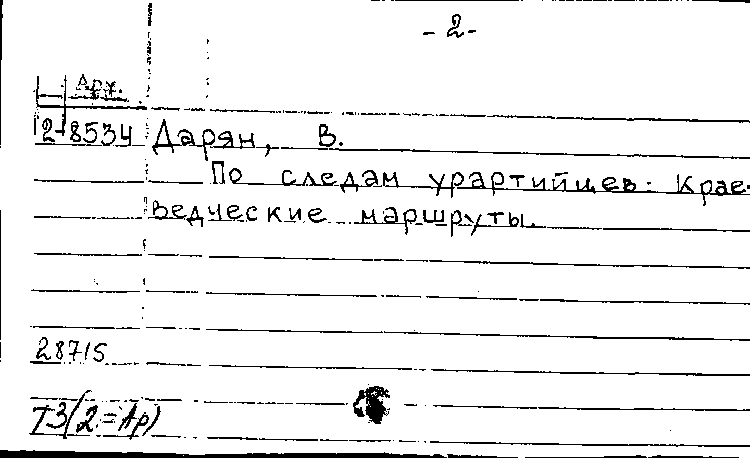 - 2 -
Арх.
2-8534 Дарян, В.
По следам урартийцев: Крае-
ведческие маршруты.
28715
Т3(2=Ар)